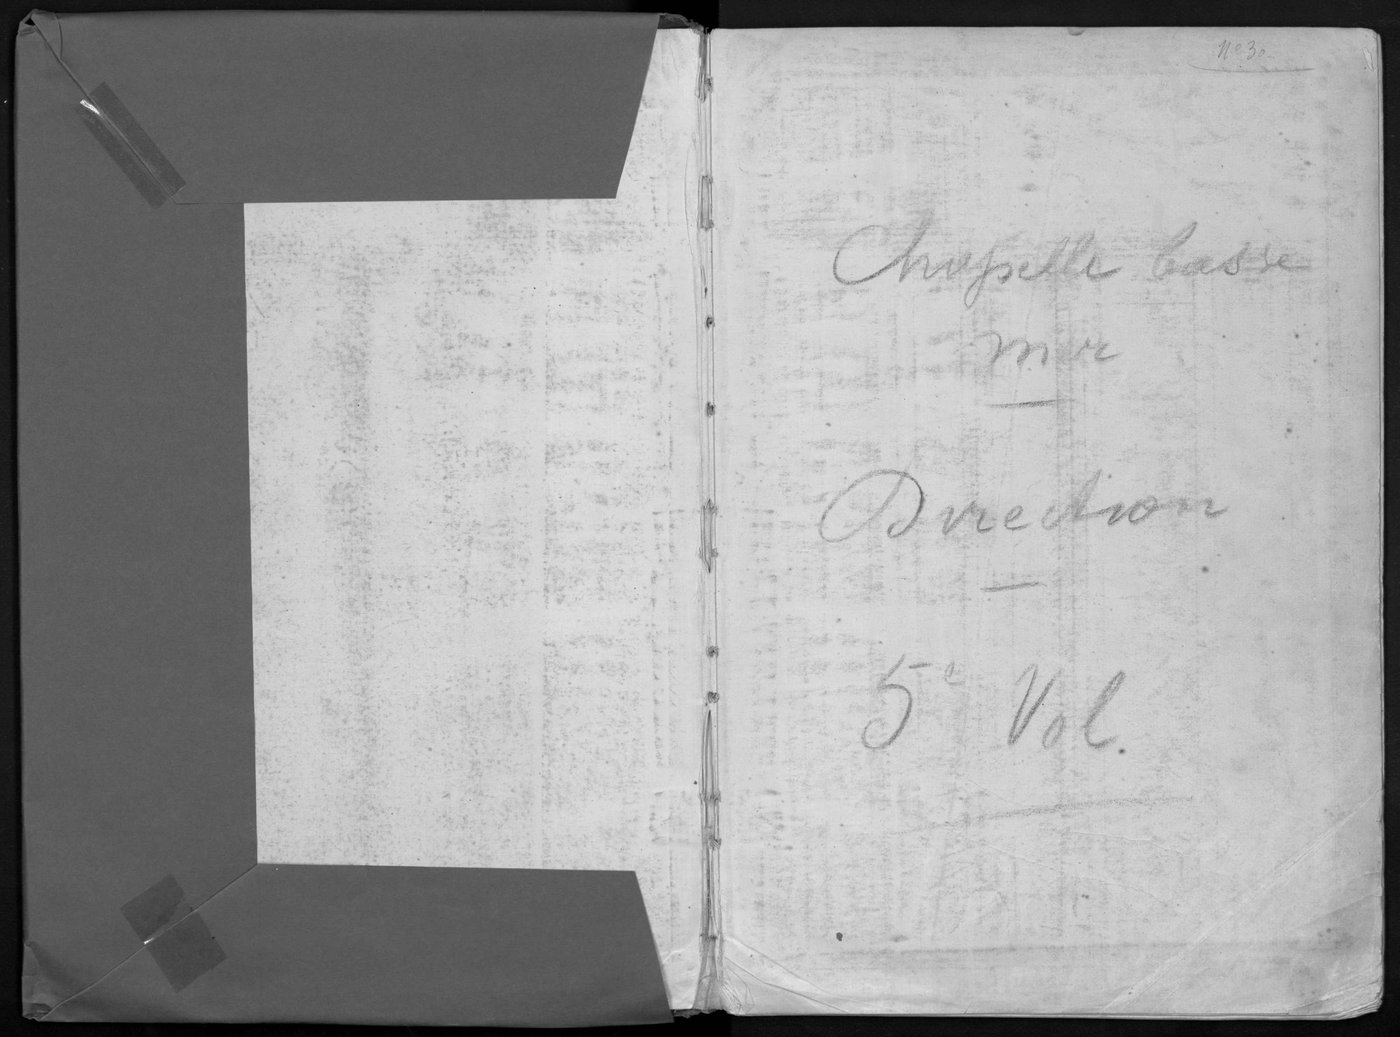 N° 30
Chapelle basse
mer
Direction
5e Vol.